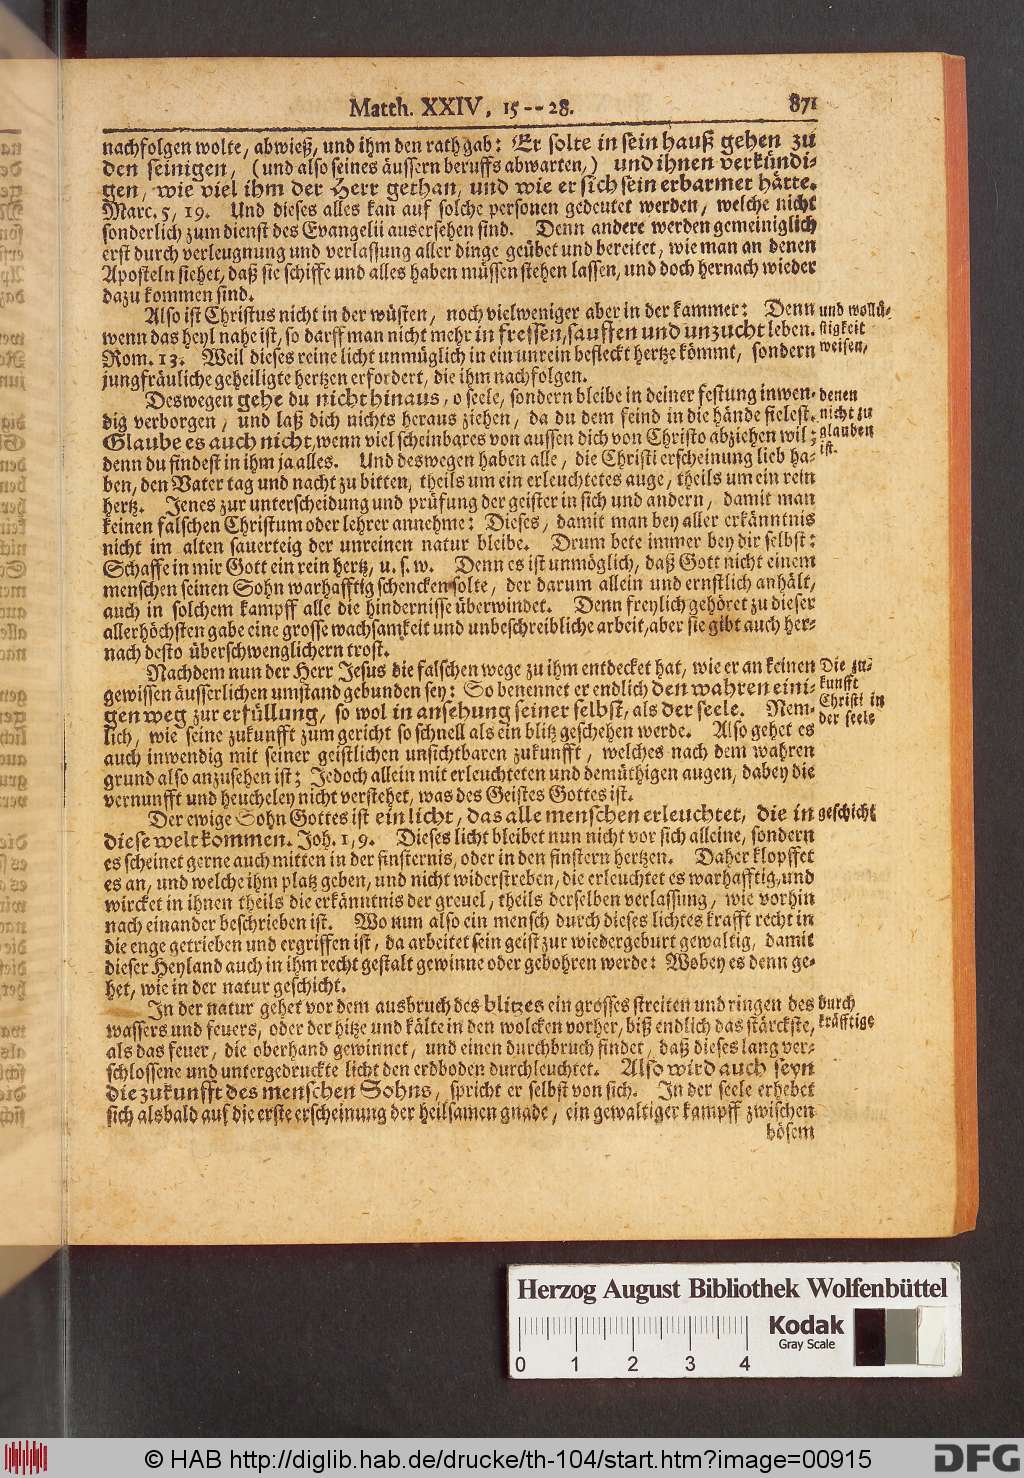 Matth. XXIV, 15--28. 871
nachfolgen wolte, abwieß, und ihm den rath gab: Er solte in sein hauß gehen zu
den seinigen, (und also seines äussern beruffs abwarten,) und ihnen verkündi-
gen, wie viel ihm der Herr gethan, und wie er sich sein erbarmet hätte.
Marc. 5, 19. Und dieses alles kan auf solche personen gedeutet werden, welche nicht
sonderlich zum dienst des Evangelii ausersehen sind. Denn andere werden gemeiniglich
erst durch verleugnung und verlassung aller dinge geübet und bereitet, wie man an denen
Aposteln siehet, daß sie schiffe und alles haben müssen stehen lassen, und doch hernach wieder
dazu kommen sind.
Also ist Christus nicht in der wüsten, noch vielweniger aber in der kammer: Denn
wenn das heyl nahe ist, so darff man nicht mehr in fressen, sauffen und unzucht leben.
Rom. 13. Weil dieses reine licht unmüglich in ein unrein beflecktt hertze kömmt, sondern
jungfräuliche geheiligte hertzen erfordert, die ihm nachfolgen.
und wollü-
stigkeit
weisen,
Deswegen gehe du nicht hinaus, o seele, sondern bleibe in deiner festung inwen-
dig verborgen, und laß dich nichts heraus ziehen, da du dem feind in die hände fielest.
Glaube es auch nicht, wenn viel scheinbares von aussen dich von Christo abziehen wil;
denn du findest in ihm ja alles. Und deswegen haben alle, die Christi erscheinung lieb ha-
ben, den Vater tag und nacht zu bitten, theils um ein erleuchtetes auge, theils um ein rein
hertz. Jenes zur unterscheidung und prüfung der geister in sich und andern, damit man
keinen falschen Christum oder lehrer annehme: Dieses, damit man bey aller erkänntnis
nicht im alten sauerteig der unreinen natur bleibe. Drum bete immer bey dir selbst:
Schaffe in mir Gott ein rein hertz, u. s. w. Denn es ist unmöglich, daß Gott nicht einem
menschen seinen Sohn warhafftig schencken solte, der darum allein und ernstlich anhält,
auch in solchem kampff alle die hindernisse überwindet. Denn freylich gehöret zu dieser
allerhöchsten gabe eine grosse wachsamkeit und unbeschreibliche arbeit, aber sie gibt auch her-
nach desto überschwenglichern trost.
denen
nicht zu
glauben
ist.
Nachdem nun der Herr Jesus die falschen wege zu ihm entdecket hat, wie er an keinen
gewissen äusserlichen umstand gebunden sey: So benennet er endlich den wahren eini-
gen weg zur erfüllung, so wol in ansehung seiner selbst, als der seele. Nem-
lich, wie seine zukunfft zum gericht so schnell als ein blitz geschehen werde. Also gehet es
auch inwendig mit seiner geistlichen unsichtbaren zukunfft, welches nach dem wahren
grund also anzusehen ist; Jedoch allein mit erleuchteten und demüthigen augen, dabey die
vernunfft und heucheley nicht verstehet, was des Geistes Gottes ist.
Die zu-
kunfft
Christi in
der seele
Der ewige Sohn Gottes ist ein licht, das alle menschen erleuchtet, die in
diese welt kommen. Joh. 1, 9. Dieses licht bleibet nun nicht vor sich alleine, sondern
es scheinet gerne auch mitten in der finsternis, oder in den finstern hertzen. Daher klopffet
es an, und welche ihm platz geben, und nicht widerstreben, die erleuchtet es warhafftig, und
wircket in ihnen theils die erkänntnis der greuel, theils derselben verlassung, wie vorhin
nach einander beschrieben ist. Wo nun also ein mensch durch dieses lichtes krafft recht in
die enge getrieben und ergriffen ist, da arbeitet sein geist zur wiedergeburt gewaltig, damit
dieser Heyland auch in ihm recht gestalt gewinne oder gebohren werde: Wobey es denn ge-
het, wie in der natur geschicht.
geschicht
In der natur gehet vor dem ausbruch des blitzes ein grosses streiten und ringen des
wassers und feuers, oder der hitze und kälte in den wolcken vorher, biß endlich das stärckste,
als das feuer, die oberhand gewinnet, und einen durchbruch findet, daß dieses lang ver-
schlossene und untergedruckte licht den erdboden durchleuchtet. Also wird auch seyn
die zukunfft des menschen Sohns, spricht er selbst von sich. In der seele erhebet
sich alsbald auf die erste erscheinung der heilsamen gnade, ein gewaltiger kampff zwischen
bösem
durch
kräfftige
Herzog August Bibliothek Wolfenbüttel
Kodak
Gray Scale
0 1 2 3 4
© HAB http://diglib.hab.de/drucke/th-104/start.htm?image=00915
DFG